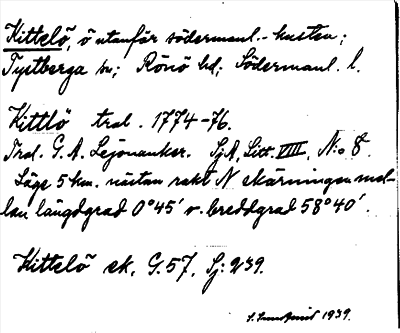 Kittelö, ö utanför södermanl.-kusten;
Tystberga sn; Rönö hd; Södermanl. l.
Kittlö tral. 1774-76.
Tral. G. A. Lejonanker. SjA, Litt. VIII, N:o 8.
Läge 5 km. nästan rakt N skärningen mel-
lan längdgrad 0°45' v. breddgrad 58°40'.
Kittelö ek. G. 57, Sj: 239.
1939.